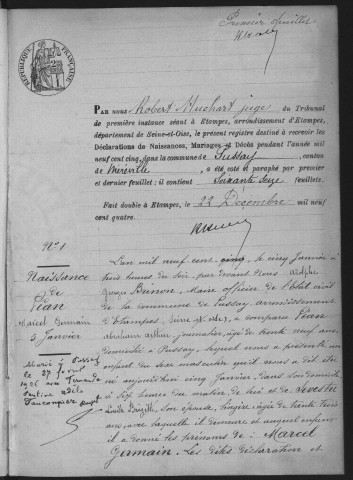 Premier feuillet
RÉPUBLIQUE FRANÇAISE
PAR nous Robert Muchart juge du Tribunal
de première instance séant à Etampes, arrondissement d'Etampes,
département de Seine-et-Oise, le présent registre destiné à recevoir les
Déclarations de Naissances, Mariages et Décès pendant l'année mil
neuf cent cinq, dans la commune de Pussay, canton
de Méréville, a été coté et paraphé par premier
et dernier feuillet; il contient Soixante Seize feuillets.
Fait double à Etampes, le 22 Décembre mil neuf
cent quatre.
N° 1
Naissance
de
Marcel Germain
5 janvier
Marié à Pussay
le 27
L'an mil neuf cent cinq, le cinq janvier à
trois heures du soir, par devant Nous
Maire officier de l'Etat civil
de la commune de Pussay, arrondissement
d'Etampes, Seine et Oise, a comparu
Arthur journalier, âgé de trente neuf ans
domicilié à Pussay, lequel nous a présenté un
enfant du sexe masculin qu'il nous a dit être
né aujourd'hui cinq Janvier, dans son domicile
à six heures du matin, de lui et de
son épouse, âgée de trente trois
ans, avec laquelle il demeure et auquel enfant
il a donné les prénoms de: Marcel
Germain. Les dites déclaration et